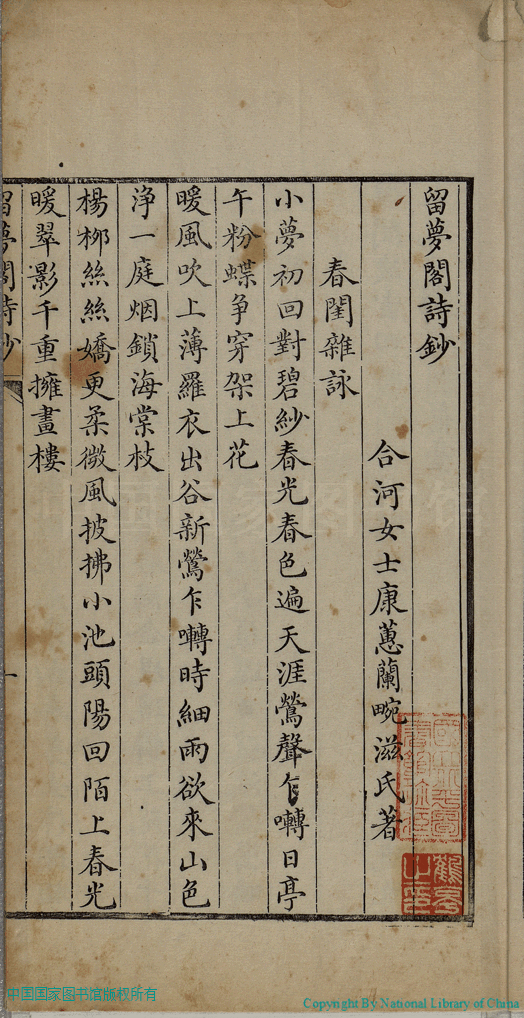 留夢閣詩鈔
合河女士康蕙蘭畹滋氏著
春閨雜詠
小夢初回對碧紗春光春色遍天涯鶯聲乍囀日亭
午粉蝶爭穿架上花
暖風吹上薄羅衣出谷新鶯乍囀時細雨欲來山色
淨一庭烟鎖海棠枝
楊栁絲絲嬌更柔微風披拂小池頭陽回陌上春光
暖翠影千重擁畫樓
留夢閣詩鈔
一
中国国家图书馆版权所有
Copyright By National Library of China